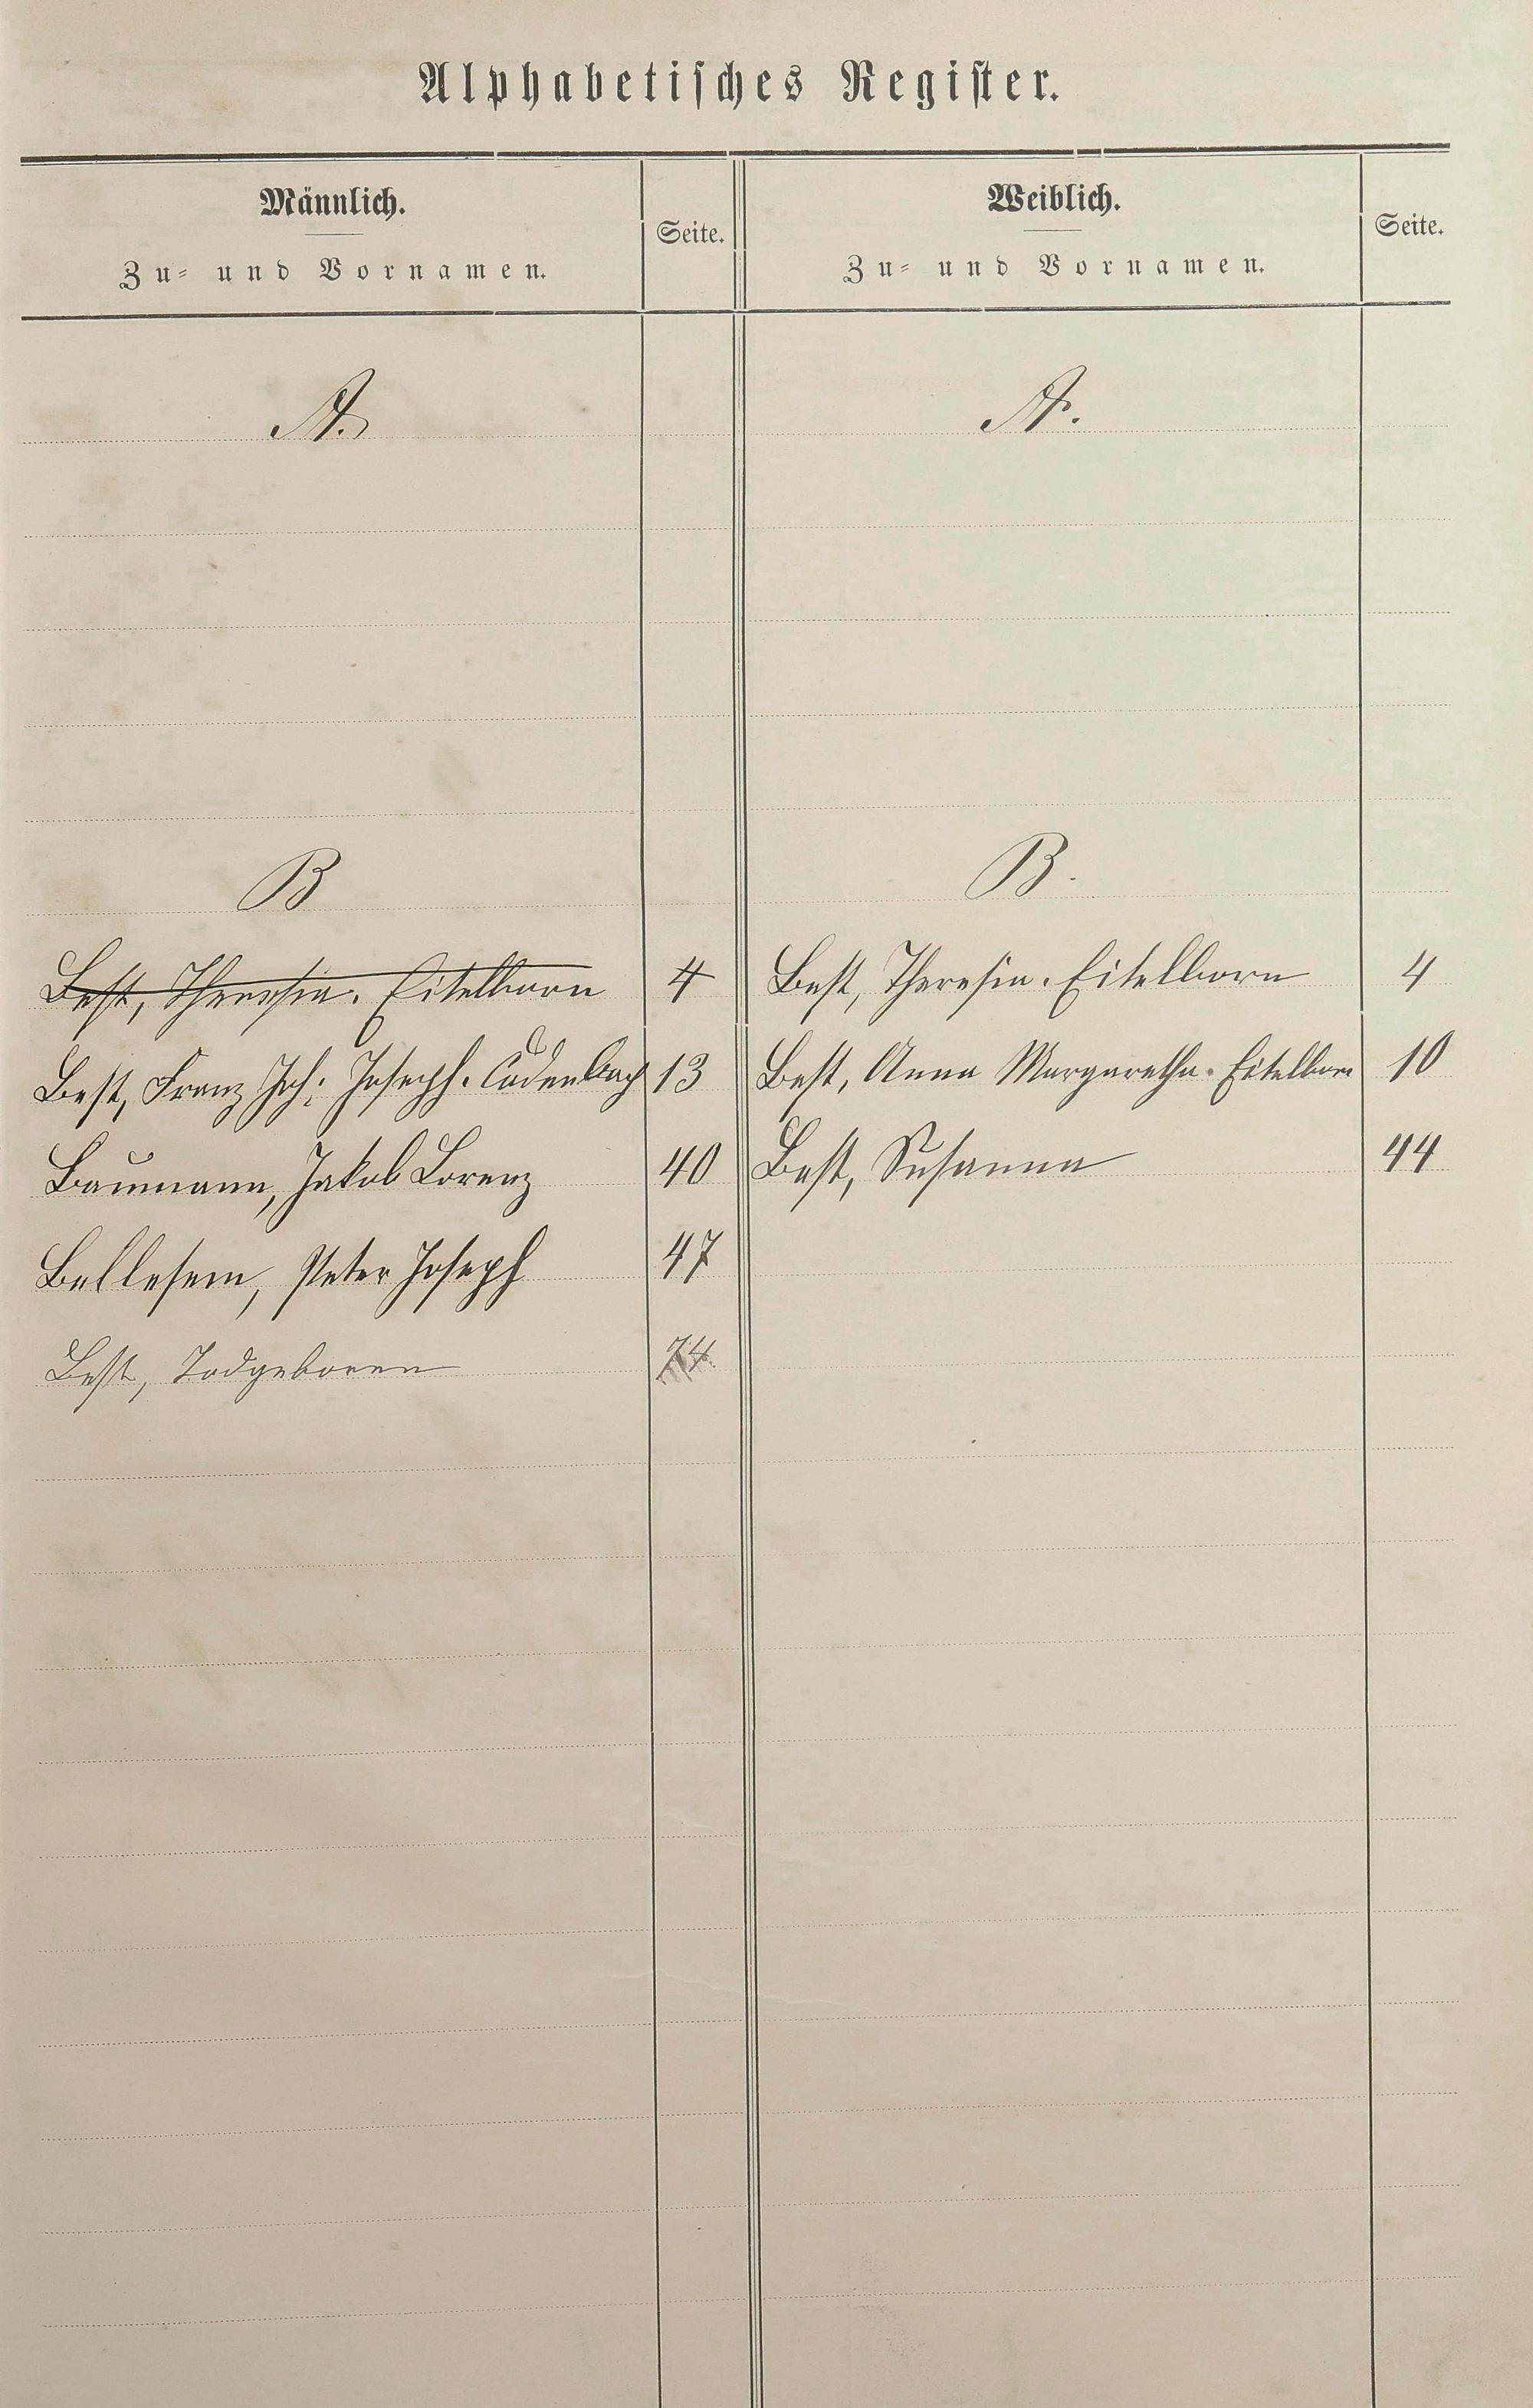 Alphabetisches Register.
Männlich.
Zu- und Vornamen.
Seite.
Weiblich.
Zu- und Vornamen.
Seite.
A.
A.
B
B.
Best, Theresia. Eitelborn 4
Best, Theresia. Eitelborn 4
Best, Franz Joh: Joseph. Cadenbach 13
Best, Anna Margaretha. Eitelborn 10
Baumann, Jakob Lorenz 40
Best, Susanna 44
Bellesem, Peter Joseph 47
Best, Todgeboren 74.